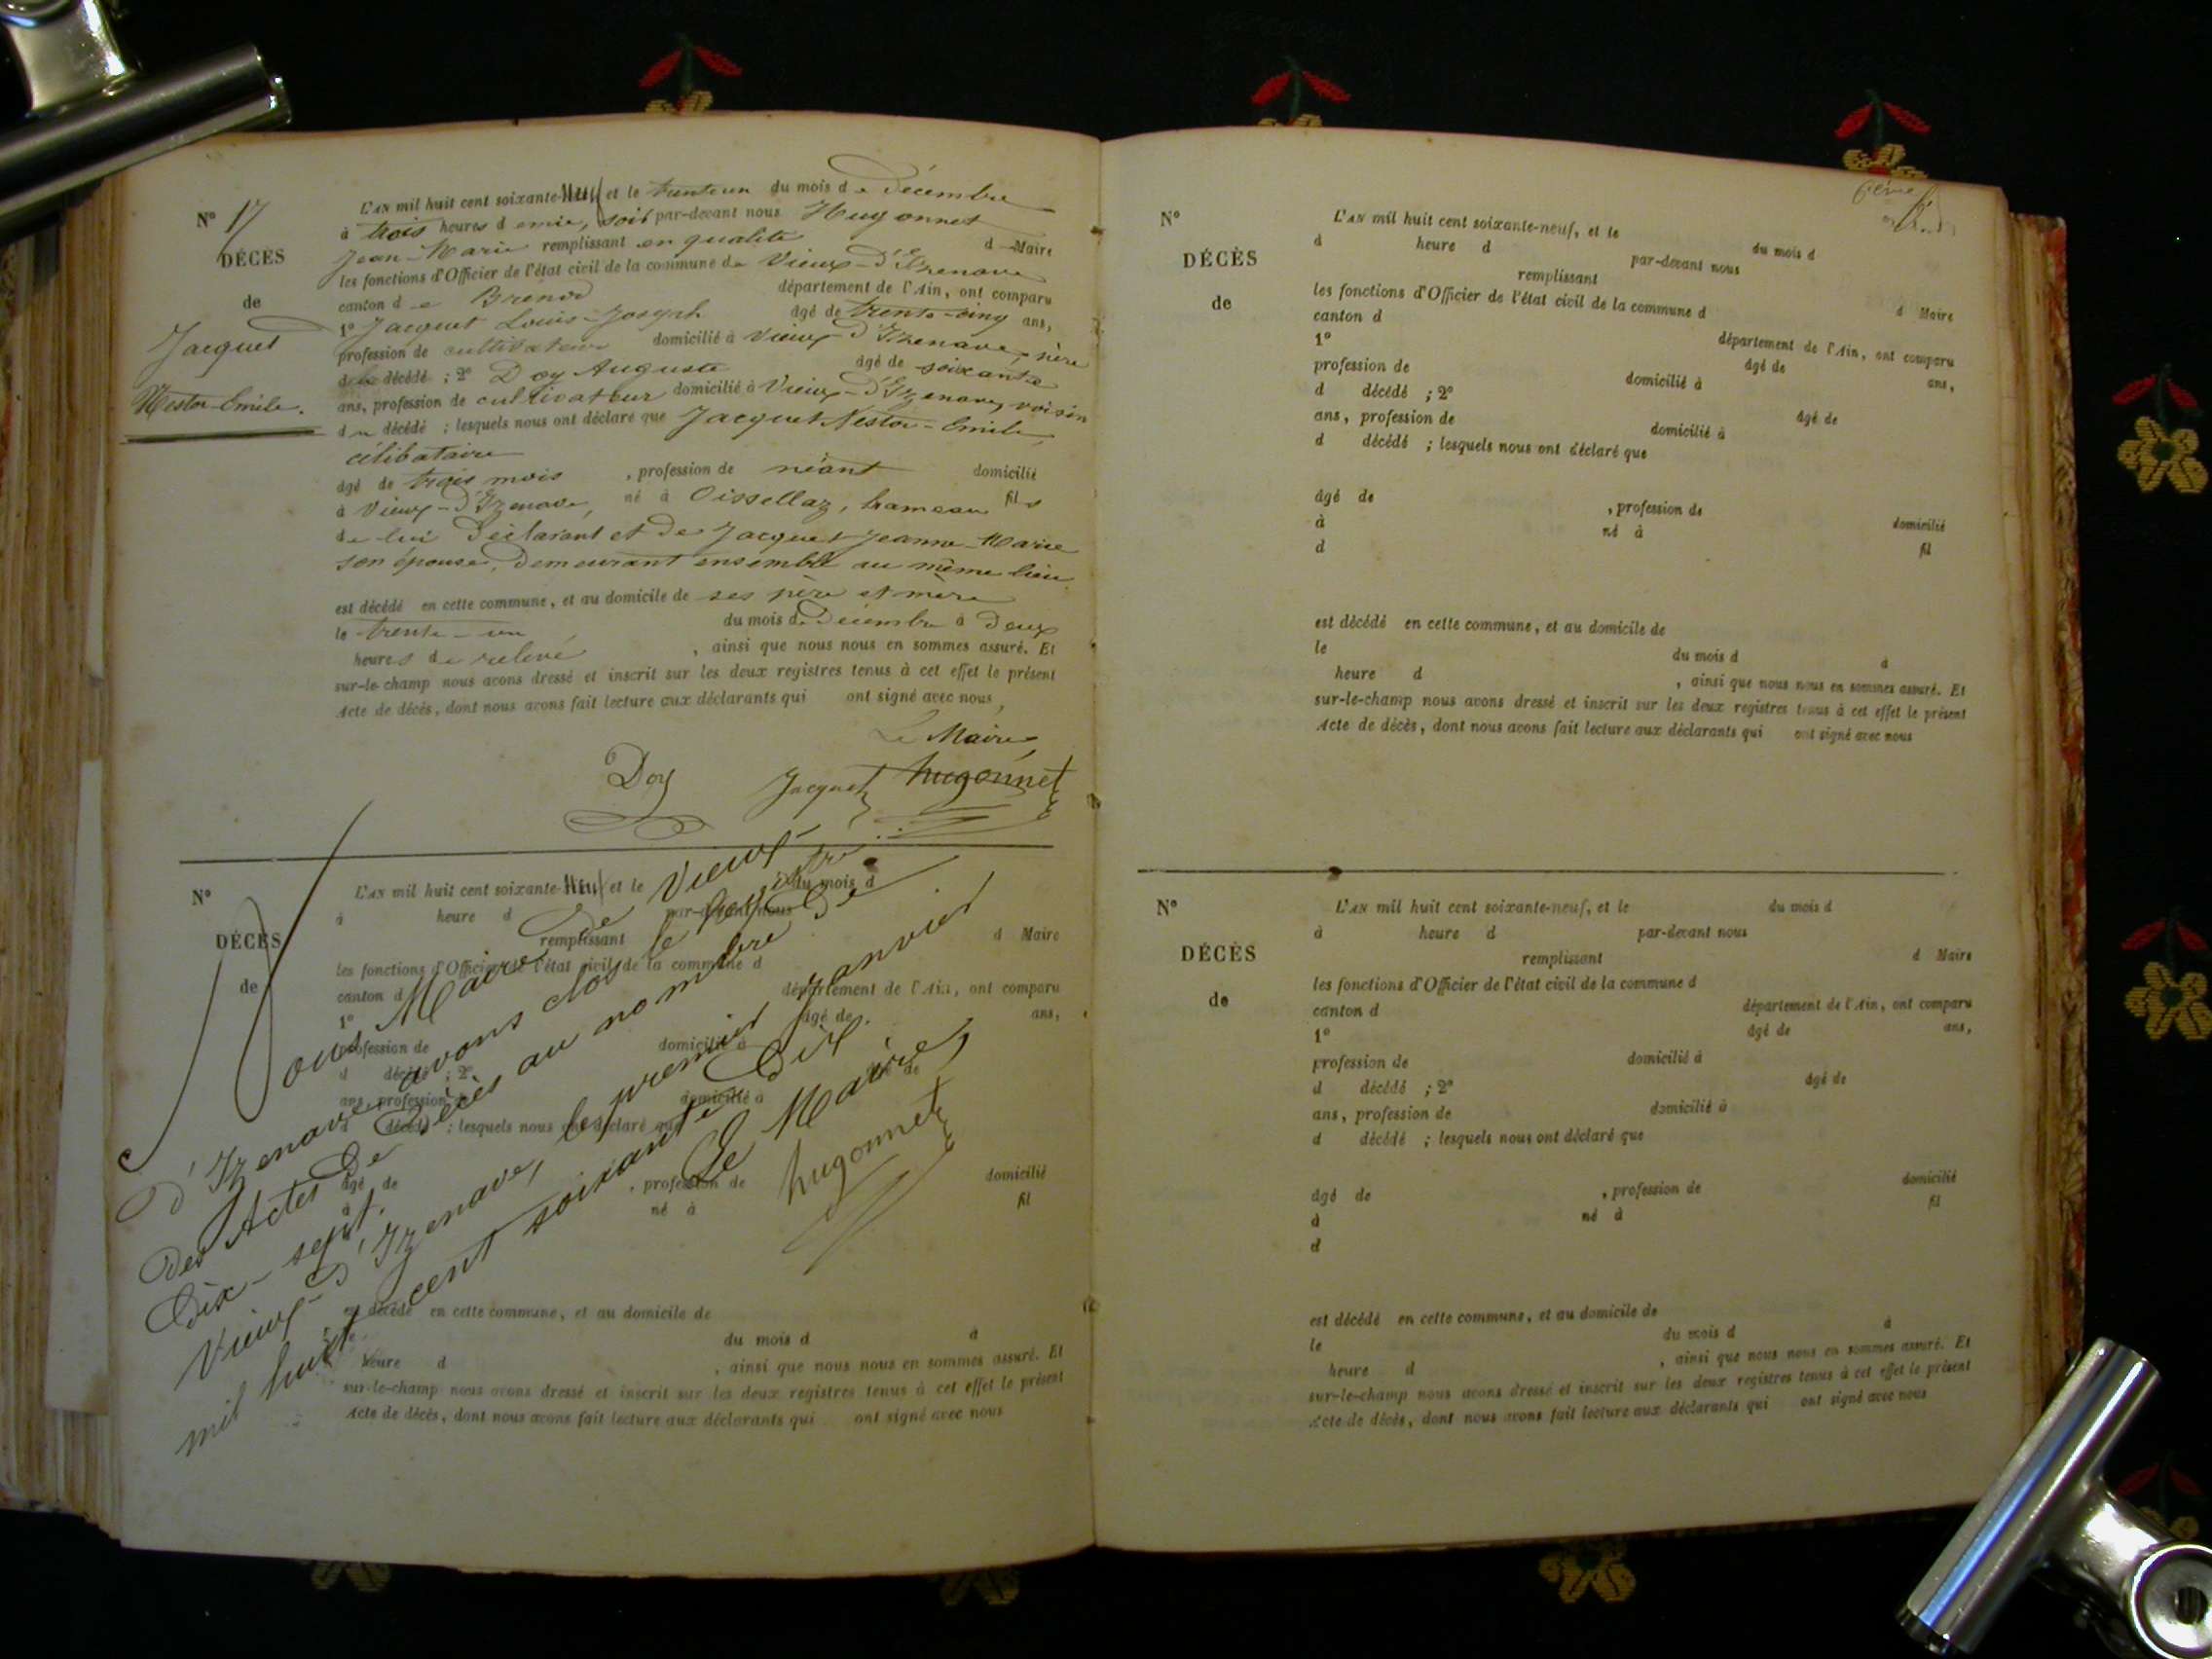 N° 17
DÉCÈS
de
Jacquet
Nestor-Emile.
L'AN mil huit cent soixante-Neuf et le trente un du mois de décembre
à trois heures demie, soir par-devant nous Hugonnet
Jean-Marie remplissant en qualité d Maire
les fonctions d'Officier de l'état civil de la commune de Vieux-d'Izenave
canton de Brénod département de l'Ain, ont comparu
1° Jacquet Louis-Joseph âgé de trente-cinq ans,
profession de cultivateur domicilié à Vieux-d'Izenave, père
décédé ; 2° Doy Auguste âgé de soixante
ans, profession de cultivateur domicilié à Vieux-d'Izenave, voisin
du décédé ; lesquels nous ont déclaré que Jacquet Nestor-Emile,
célibataire
âgé de trois mois , profession de néant domicilié
à Vieux-d'Izenave, né à Oissellaz, hameau fils
de lui déclarant et de Jacquet Jeanne-Marie
son épouse, demeurant ensemble au même lieu
est décédé en cette commune, et au domicile de ses père et mère
le trente-un du mois de Décembre à deux
heures de relevé , ainsi que nous nous en sommes assuré. Et
sur-le-champ nous avons dressé et inscrit sur les deux registres tenus à cet effet le présent
Acte de décès, dont nous avons fait lecture aux déclarants qui ont signé avec nous,
Le Maire,
Doy Jacquet hugonnet
N°
DÉCÈS
de
L'AN mil huit cent soixante-Neuf et le du mois d
à heure d par-devant nous
remplissant d Maire
les fonctions d'Officier de l'état civil de la commune d
canton d département de l'Ain, ont comparu
1° âgé de ans,
profession de domicilié à
d décédé ; 2° âgé de
ans, profession de domicilié à
d décédé ; lesquels nous ont déclaré que
âgé de , profession de domicilié
à né à fil
est décédé en cette commune, et au domicile de
le du mois d à
heure d , ainsi que nous nous en sommes assuré. Et
sur-le-champ nous avons dressé et inscrit sur les deux registres tenus à cet effet le présent
Acte de décès, dont nous avons fait lecture aux déclarants qui ont signé avec nous
Nous Maire de Vieux-
d'Izenave avons clos le Registre
des Actes de Décès au nombre de
Dix-sept.
Vieux-d'Izenave, le premier Janvier
mil huit cent soixante Dix
Le Maire,
hugonnet
N°
DÉCÈS
de
L'AN mil huit cent soixante-neuf, et le du mois d
à heure d par-devant nous
remplissant d Maire
les fonctions d'Officier de l'état civil de la commune d
canton d département de l'Ain, ont comparu
1° âgé de ans,
profession de domicilié à
d décédé ; 2° âgé de
ans, profession de domicilié à
d décédé ; lesquels nous ont déclaré que
âgé de , profession de domicilié
à né à fil
d
est décédé en cette commune, et au domicile de
le du mois d à
heure d , ainsi que nous nous en sommes assuré. Et
sur-le-champ nous avons dressé et inscrit sur les deux registres tenus à cet effet le présent
Acte de décès, dont nous avons fait lecture aux déclarants qui ont signé avec nous
N°
DÉCÈS
de
L'AN mil huit cent soixante-neuf, et le du mois d
à heure d par-devant nous
remplissant d Maire
les fonctions d'Officier de l'état civil de la commune d
canton d département de l'Ain, ont comparu
1° âgé de ans,
profession de domicilié à
d décédé ; 2° âgé de
ans, profession de domicilié à
d décédé ; lesquels nous ont déclaré que
âgé de , profession de domicilié
à né à fil
d
est décédé en cette commune, et au domicile de
le du mois d à
heure d , ainsi que nous nous en sommes assuré. Et
sur-le-champ nous avons dressé et inscrit sur les deux registres tenus à cet effet le présent
Acte de décès, dont nous avons fait lecture aux déclarants qui ont signé avec nous